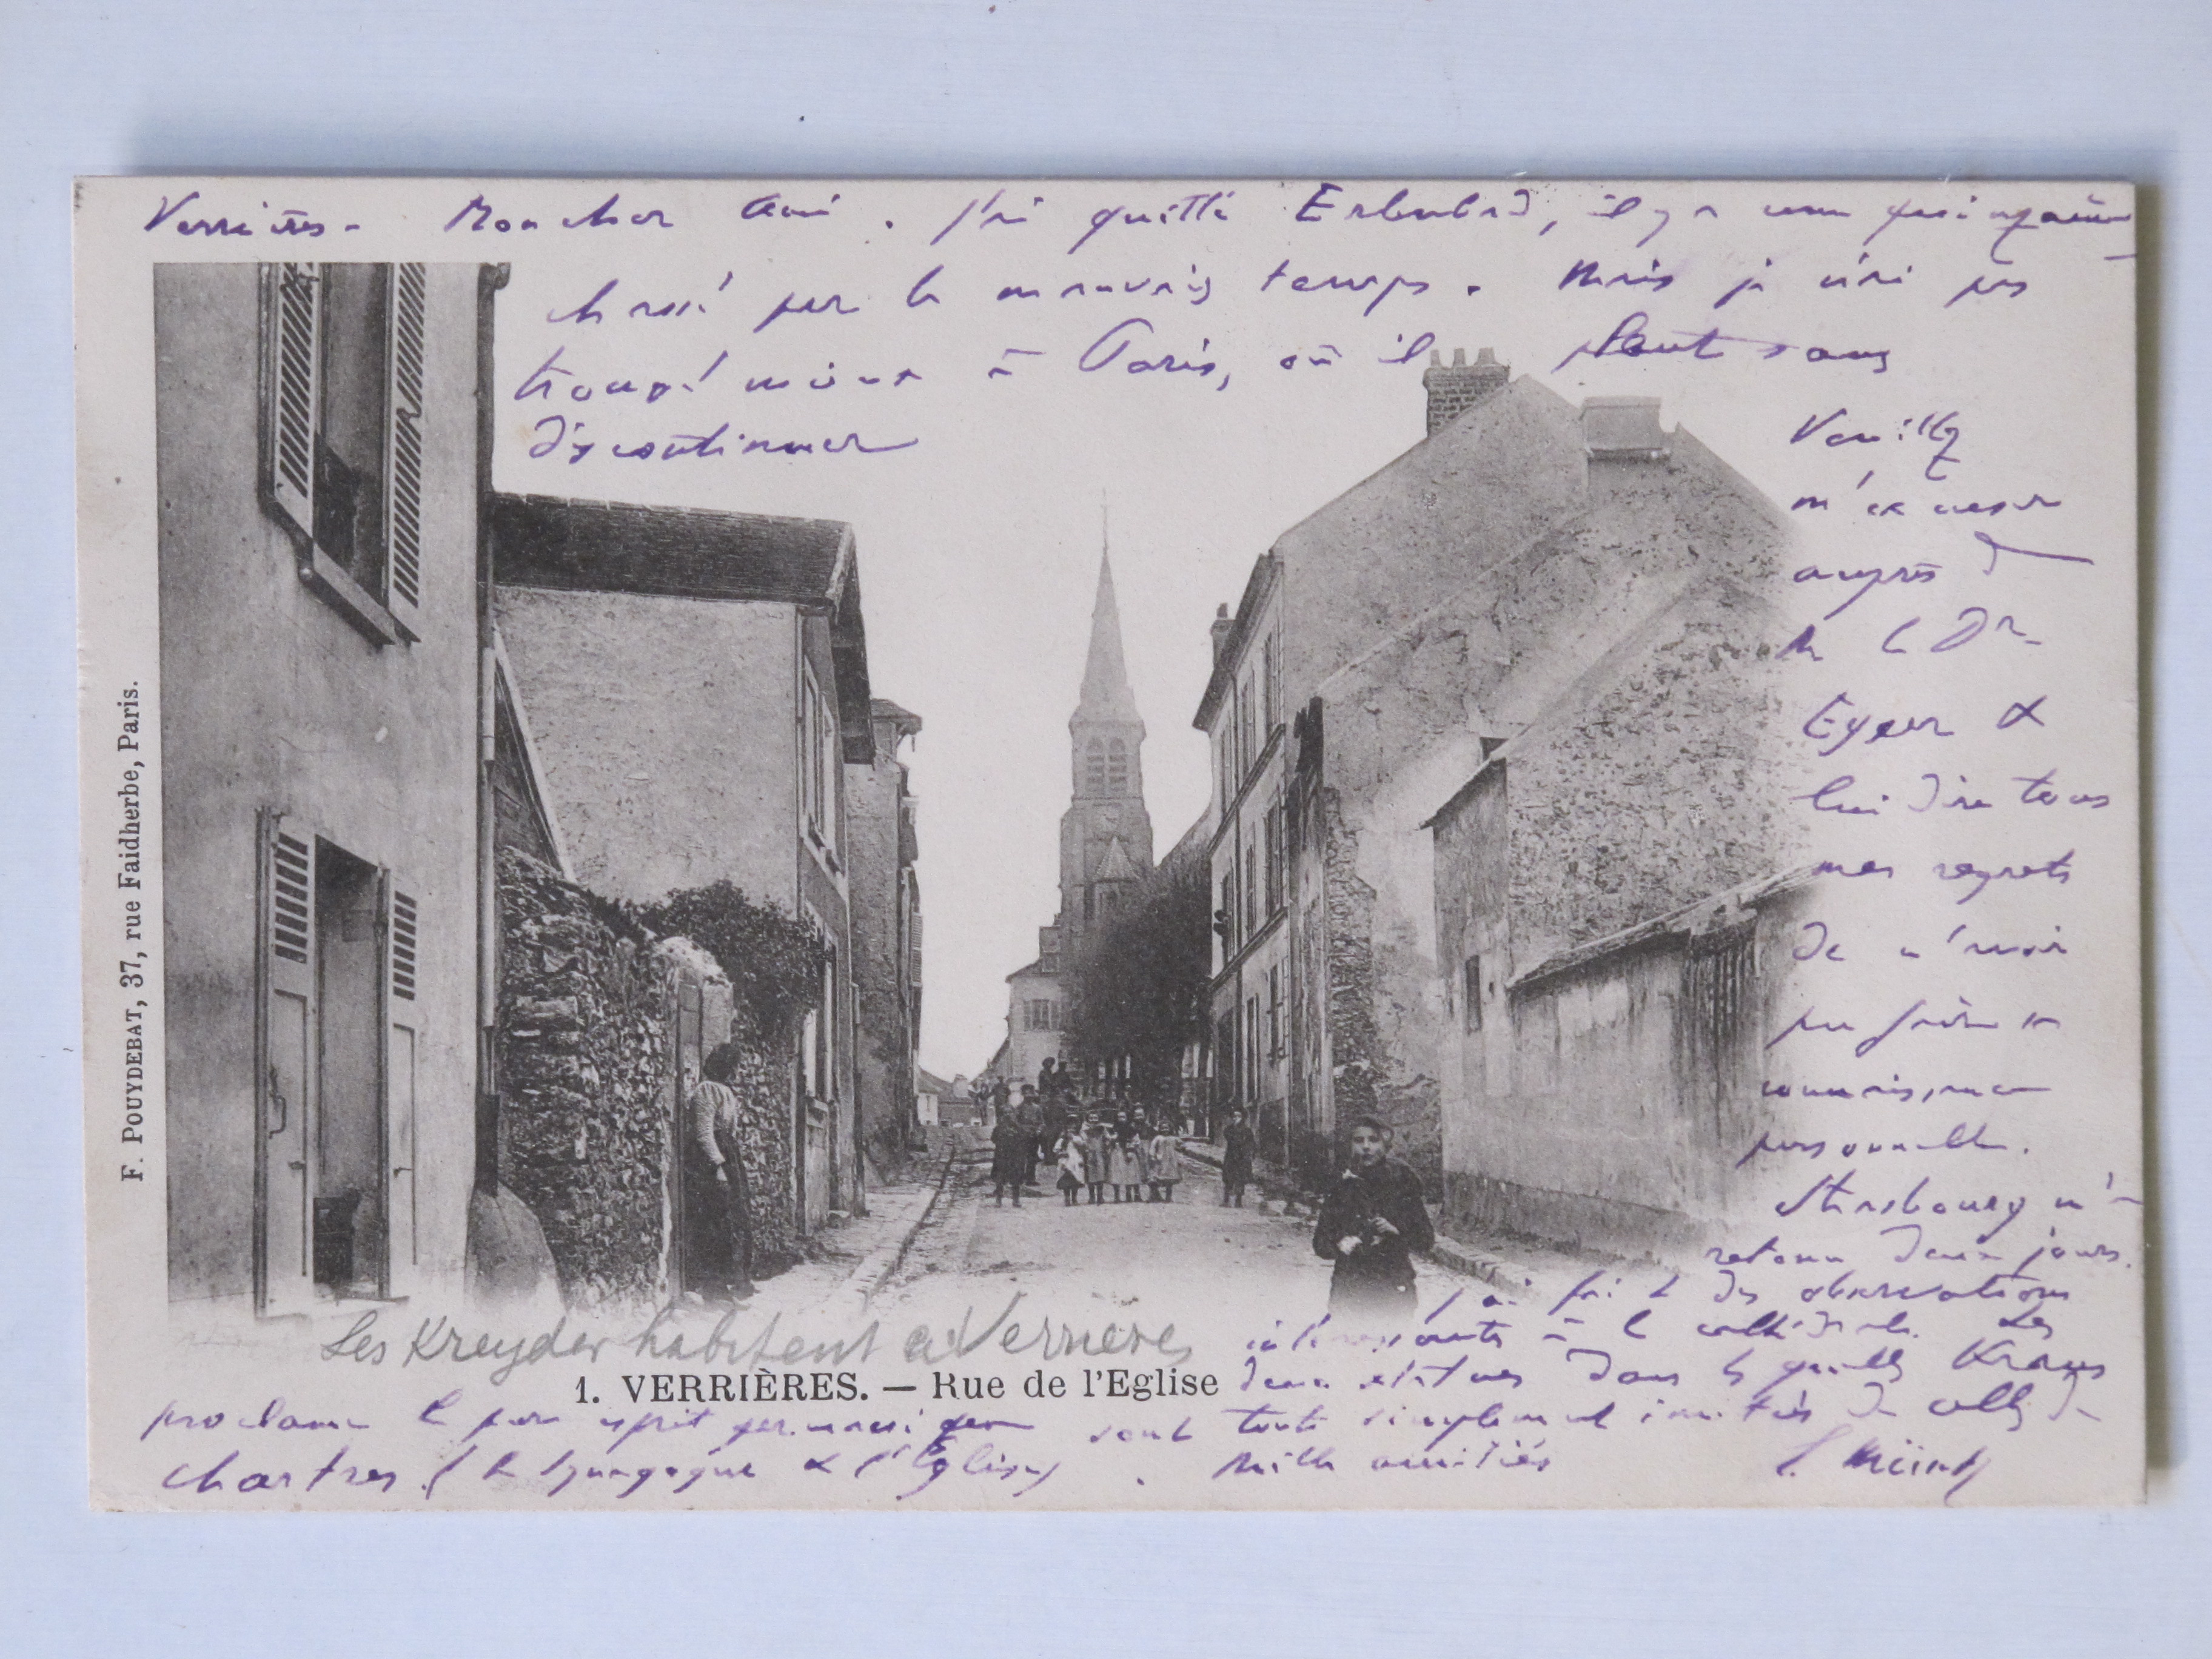 Verrières - Mon cher Ami. j'ai quitté Erlenbad, il y a une quinzaine
chassé par le mauvais temps. Mais je n'ai pas
trouvé mieux à Paris, où il pleut sans
discontinuer
Veuillez
m'excuser
auprès de
M le Dr
Eyser &
lui dire tous
mes regrets
de n'avoir
pu faire sa
connaissance
personnelle.
Strasbourg m'a
retenu deux jours.
j'ai fait des observations
intéressantes à la cathédrale. Les
deux statues dans lesquelles Kraus
proclame le pur esprit germanique sont tout simplement imitées de celles de
Chartres (la Synagogue & l'Eglise). Mille amitiés
E. Müntz
Les Kreyder habitent a Verrieres
1. VERRIÈRES. — Rue de l'Eglise
F. POUYDEBAT, 37, rue Faidherbe, Paris.